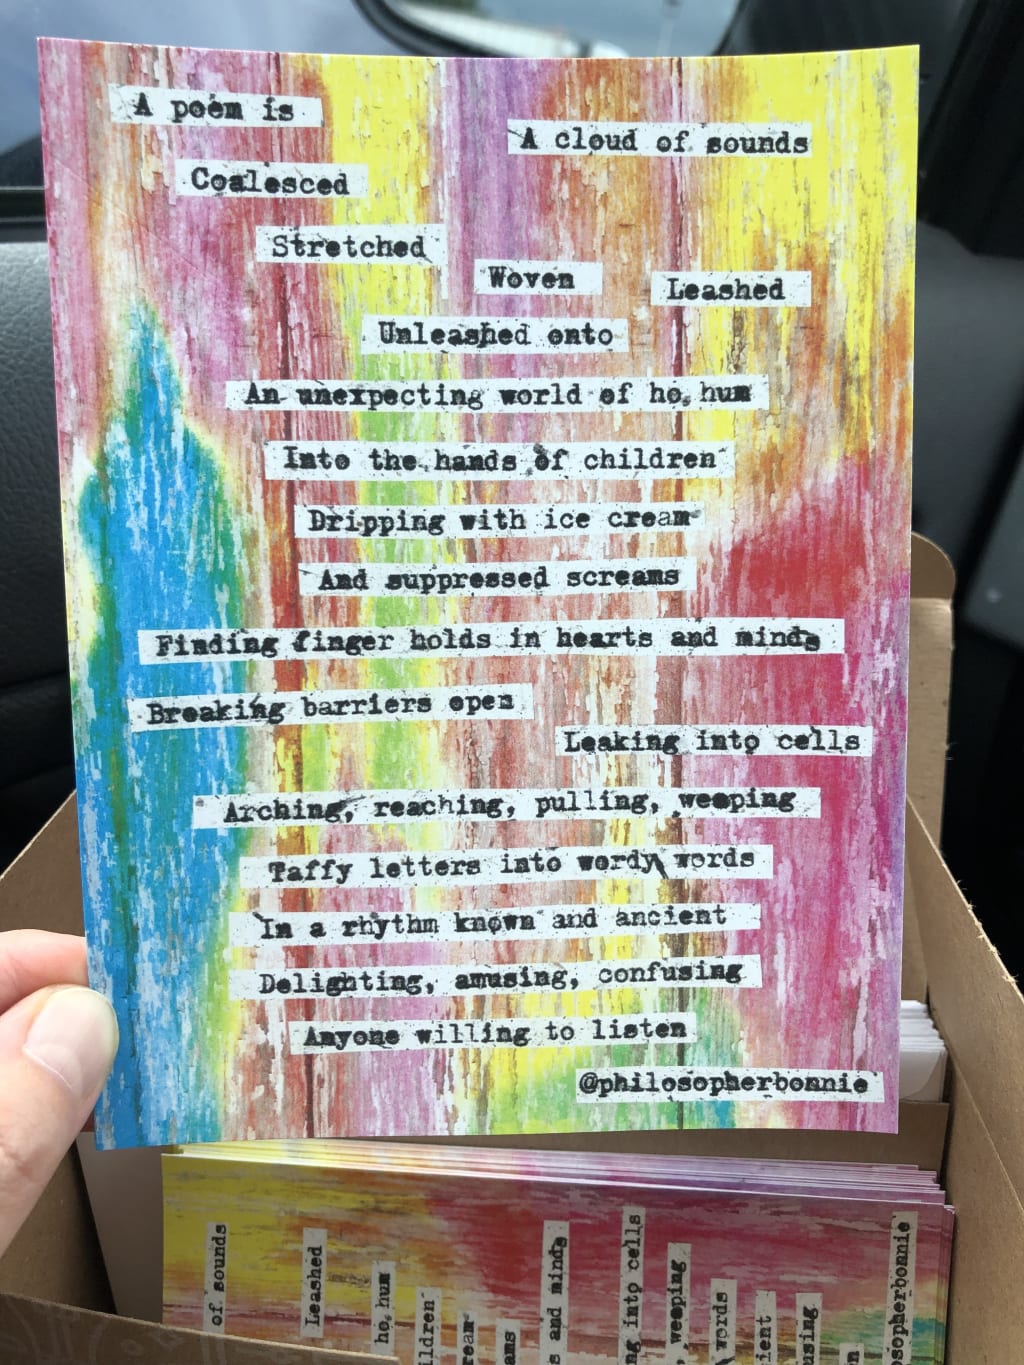 A poem is
A cloud of sounds
Coalesced
Stretched
Woven
Leashed
Unleashed onto
An unexpecting world of ho, hum
Into the hands of children
Dripping with ice cream
And suppressed screams
Finding finger holds in hearts and minds
Breaking barriers open
Leaking into cells
Arching, reaching, pulling, weeping
Taffy letters into wordy words
In a rhythm known and ancient
Delighting, amusing, confusing
Anyone willing to listen
@philosopherbonnie
of sounds
Leashed
ho, hum
ildren
ream
ams
s and minds
ng into cells
, weeping
words
ient
using
n
sopherbonnie